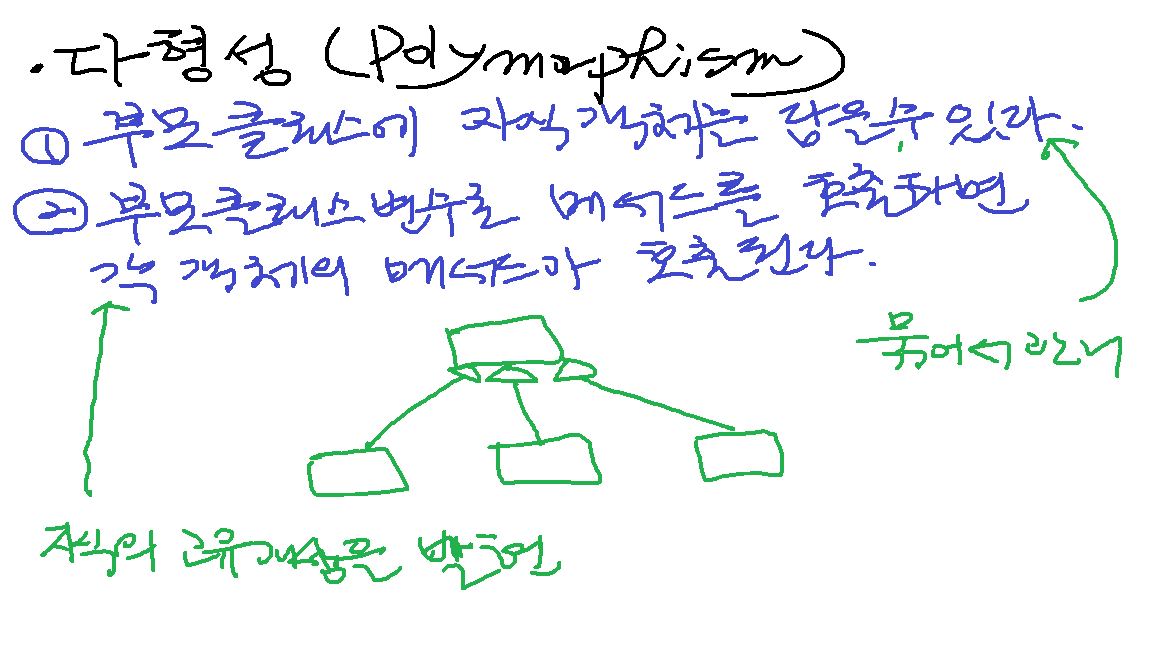 . 다형성 (Polymorphism)
① 부모 클래스에 자식객체를 담을수 있다.
② 부모클래스변수로 메서드를 호출하면
각 객체의 메서드가 호출된다.
묶어서 관리
자식의 고유개성을 발현